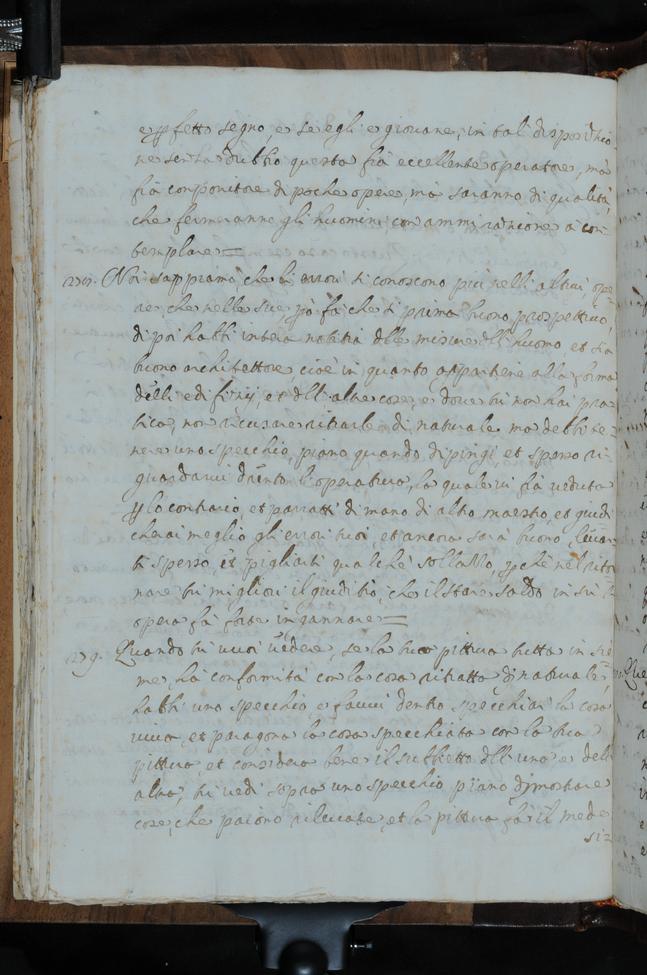 e pfetto segno, e se egli e giovane, in tal dispositio
ne senza dubbio questo fia eccellente operatore, mà
fia componitore di poche opere, mà saranno di qualità,
che fermeranno gli huomini con ammiratione a con
templare =
Noi sappiamo che li errori si conoscono più nelli altrui, ope
re, che nelle sue, pò fa che si prima buono prospettivo,
di poi habbi intera notitia dlle misure dll'huomo et sia
buono architettore, cioè in quanto appartiene alla forma
delli edifitij, et dll'altre cose, e dove tu non hai pra
tica, non ricusare ritrarle di naturale ma debbi te
nere uno specchio, piano quando dipingi, et spesso ri
guardarvi drento l'opera tua, la quale vi fia veduta
p lo contrario, et parratti di mano di altro maestro, et giudi
cherai meglio gli errori tuoi, et ancora sarà buono, levar
ti spesso, et pigliarti qualche sollazzo, pchè nel ritor
nare tu migliori il giuditio, che il stare saldo in sù l'
opera fà forte ingannare =
279. Quando tu vuoi vedere, se la tua pittura tutta in sie
me, hà conformità con la cosa ritratta di naturale,
habbi uno specchio e favvi dentro specchiar la cosa
viva et paragona la cosa specchiata con la tua
pittura, et considera bene il subbietto dll'uno e dell'
altro, tu vedi sopra uno specchio piano dimostrare
cose, che paiono rilevate, et la pittura fà il mede